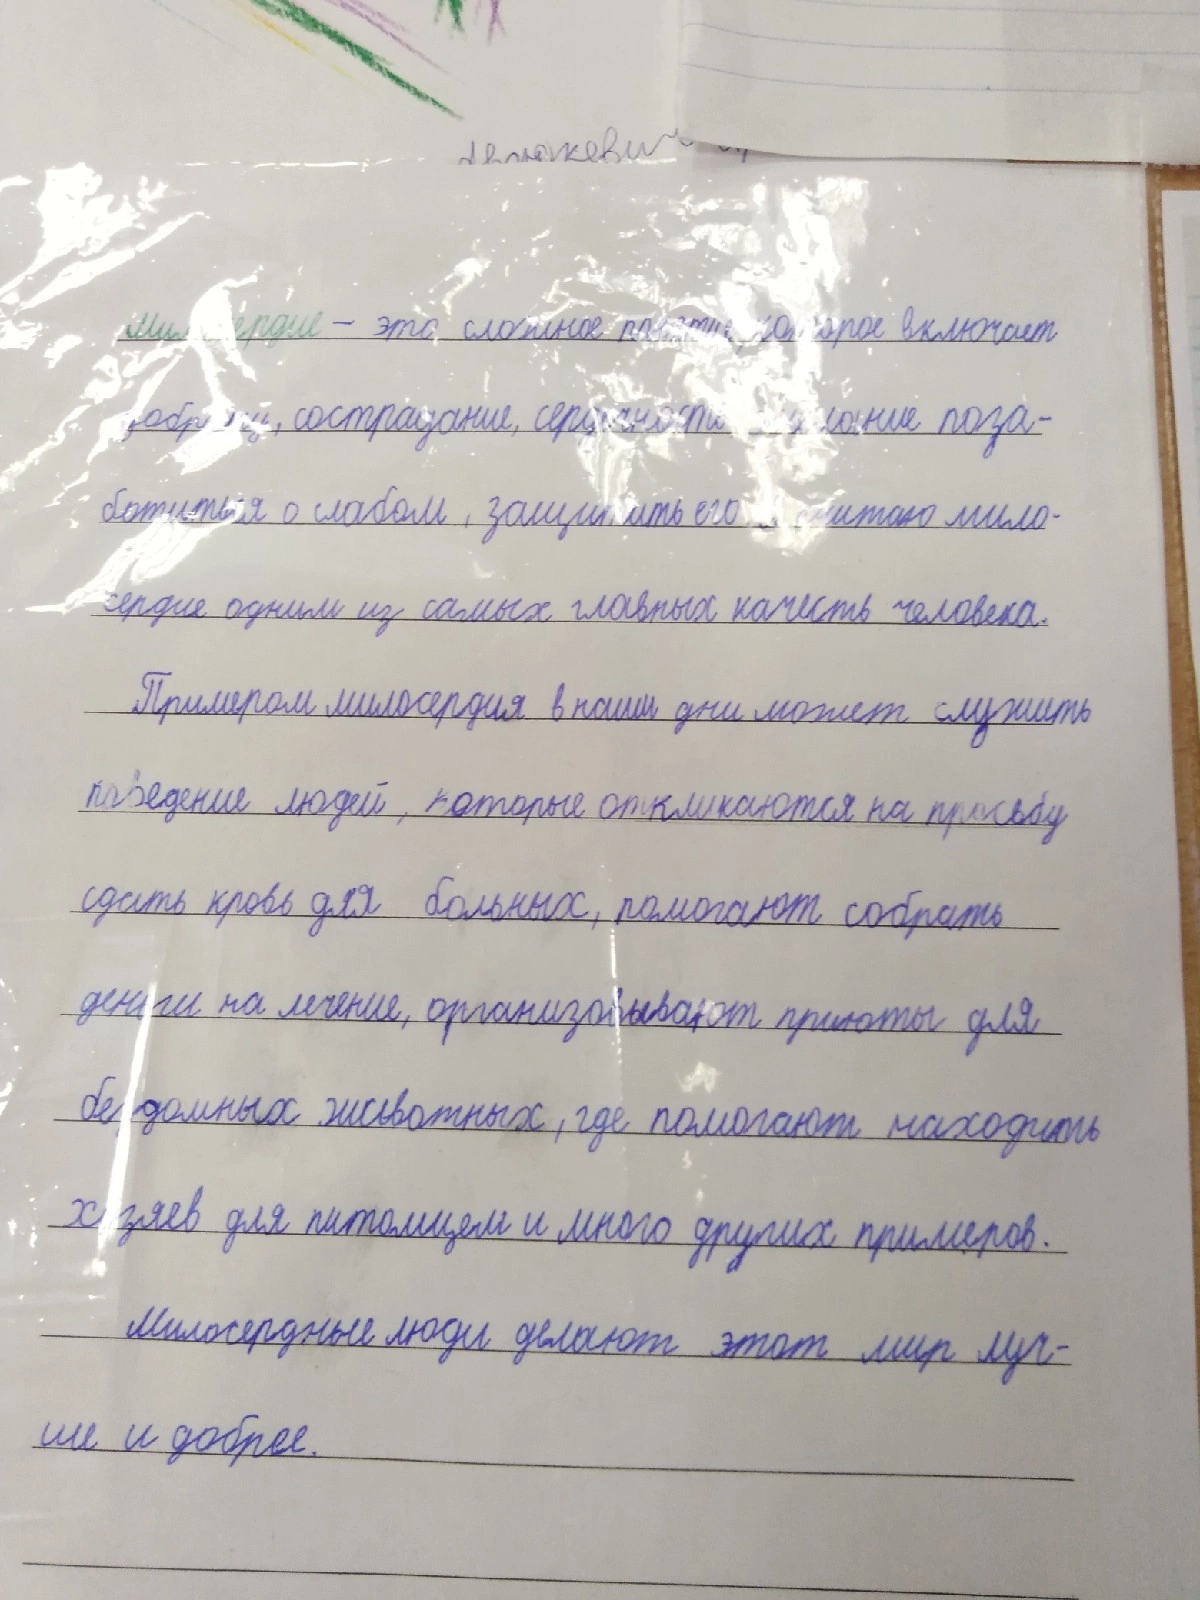 Милосердие – это сложное понятие, которое включает
доброту, сострадание, сердечность, желание поза-
ботиться о слабом, защитить его. Я считаю мило-
сердие одним из самых главных качесть человека.
Примером милосердия в наши дни может служить
поведение людей, которые откликаются на просьбу
сдать кровь для больных, помогают собрать
деньги на лечение, организовывают приюты для
бездомных животных, где помогают находить
хозяев для питомцем и много других примеров.
Милосердные люди делают этот мир луч-
ше и добрее.